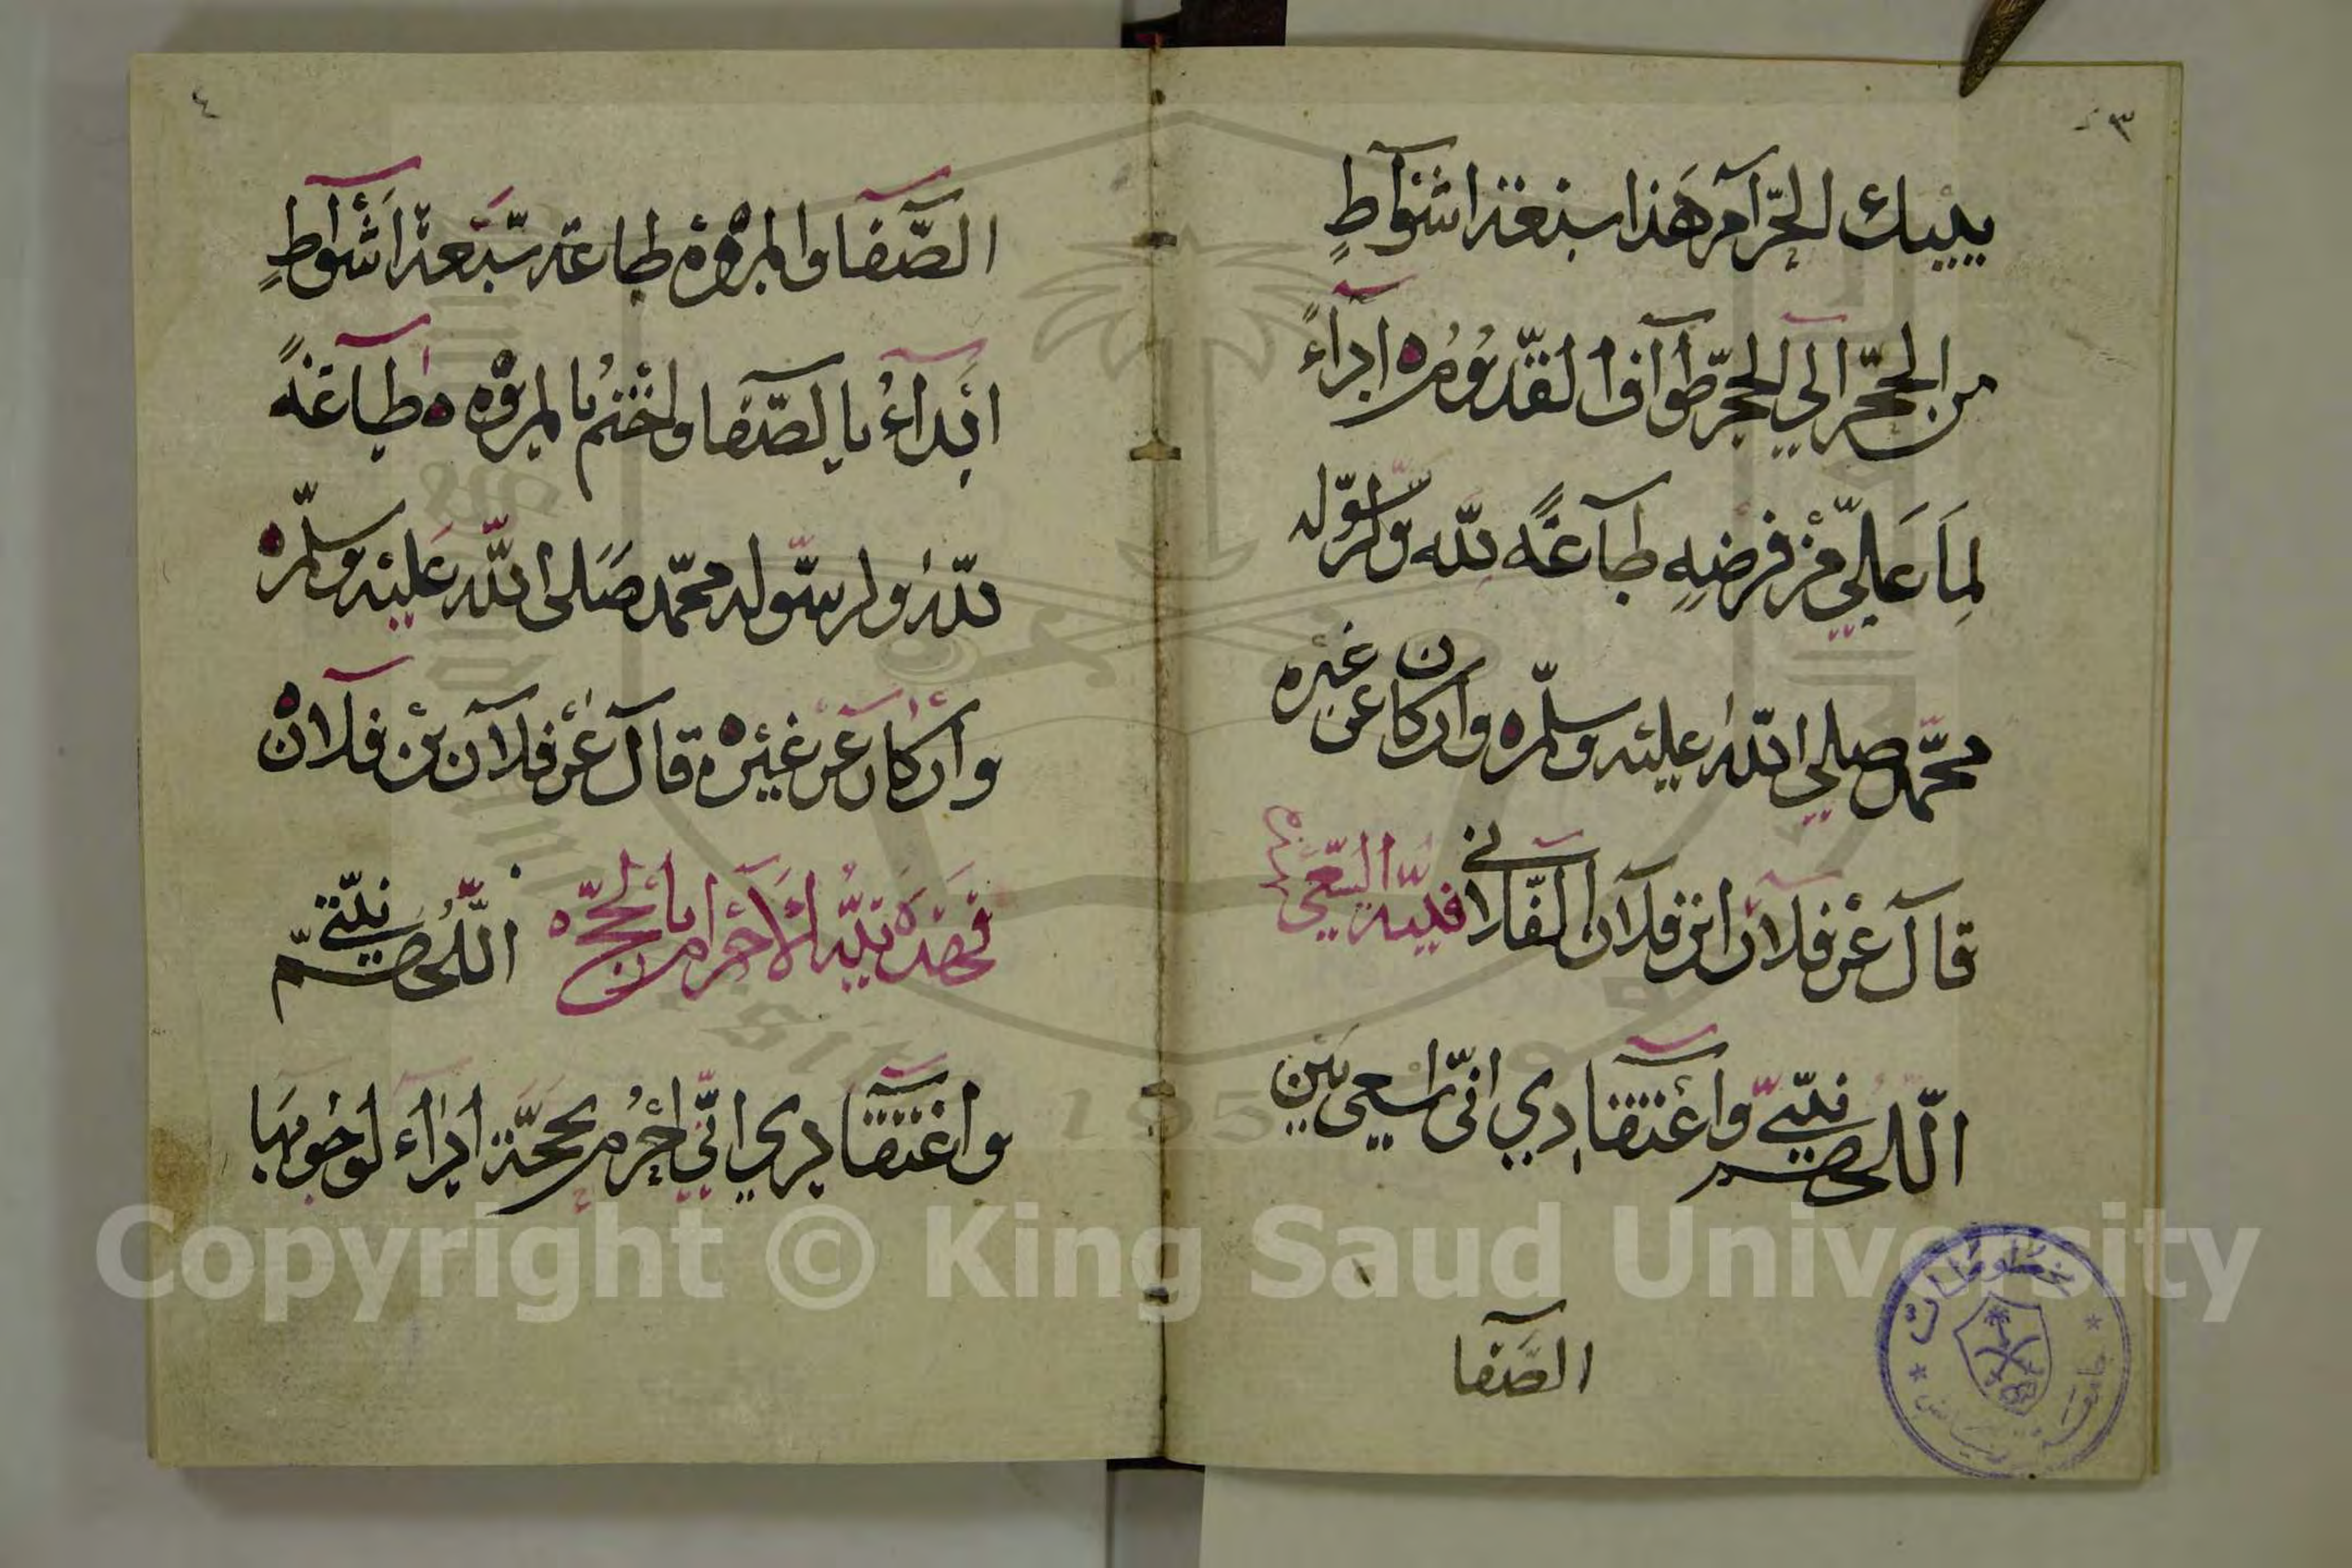 ٣
ببيتك الحرآم هَذا سبعة اشوآطٍ
من الحجّر الي الحجرّ طوآف القدّوم ه ادآءً
لِمَا عَليّ من فرضِهِ طآعةً لله ولرسّوله
محمّد صلي اللّه عليه وسلّم ه وان كان عن غيره
قآل عن فلآن ابن فلآن الفلآني فنيّة السّعي
اللّهم نيّتي وآعتقادي انيّ اسعي بين
الصّفا
٤
الصّفا والمروة طاعة سّبعة اشوآطٍ
ابدآءُ بالصّفا واختمُ بالمروه ه طآعةً
للّه ولرسّوله محمّد صَلى اللّه عَليه وسلّم ه
وان كان عن غيره ه قآل عن فلآن بن فلان
فهذه نيّة الآحرام بالحجّ ه اللّهم نيّتي
واعتقادي انيّ احرُم بحجّة ادآء لوجوبهَا
مخطوطات
Copyright © King Saud University